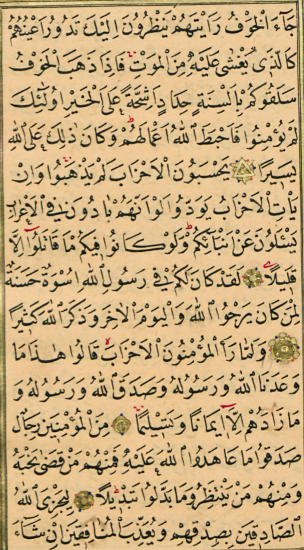 جَاءَ الْخَوْفُ رَاَيْتَهُمْ يَنْظُرُونَ اِلَيْكَ تَدُورُ اَعْيُنُهُمْ
كَالَّذى يُغْشٰى عَلَيْهِ مِنَ الْمَوْتِ فَاِذَا ذَهَبَ الْخَوْفُ
سَلَقُوكُمْ بِاَلْسِنَةٍ حِدَادٍ اَشِحَّةً عَلَى الْخَيْرِ اُولٰئِكَ
لَمْ يُؤْمِنُوا فَاَحْبَطَ اللّٰهُ اَعْمَالَهُمْ وَكَانَ ذٰلِكَ عَلَى اللّٰهِ
يَسيرًا يَحْسَبُونَ الْاَحْزَابَ لَمْ يَذْهَبُوا وَاِنْ
يَاْتِ الْاَحْزَابُ يَوَدُّوا لَوْ اَنَّهُمْ بَادُونَ فِى الْاَعْرَابِ
يَسْئَلُونَ عَنْ اَنْبَائِكُمْ وَلَوْ كَانُوا فيكُمْ مَا قَاتَلُوا اِلَّا
قَليلًا لَقَدْ كَانَ لَكُمْ فى رَسُولِ اللّٰهِ اُسْوَةٌ حَسَنَةٌ
لِمَنْ كَانَ يَرْجُوا اللّٰهَ وَالْيَوْمَ الْاٰخِرَ وَذَكَرَ اللّٰهَ كَثيرًا
وَلَمَّا رَاَ الْمُؤْمِنُونَ الْاَحْزَابَ قَالُوا هٰذَا مَا
وَعَدَنَا اللّٰهُ وَرَسُولُهُ وَصَدَقَ اللّٰهُ وَرَسُولُهُ وَ
مَا زَادَهُمْ اِلَّا ايمَانًا وَتَسْليمًا مِنَ الْمُؤْمِنينَ رِجَالٌ
صَدَقُوا مَا عَاهَدُوا اللّٰهَ عَلَيْهِ فَمِنْهُمْ مَنْ قَضٰى نَحْبَهُ
وَمِنْهُمْ مَنْ يَنْتَظِرُ وَمَا بَدَّلُوا تَبْديلًا لِيَجْزِىَ اللّٰهُ
الصَّادِقينَ بِصِدْقِهِمْ وَيُعَذِّبَ الْمُنَافِقينَ اِنْ شَاءَ